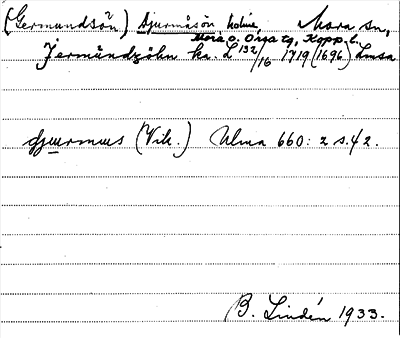 (Germundsön) Djurmåsön holme, Mora sn,
Mora o. Orsa tg, Kopp. l.
Jermundzöhn ka. L 132/16 1719 (1696) Lmsa
djuurmus (Vik.) Ulma 660: 2 s. 42.
B. Lindén 1933.